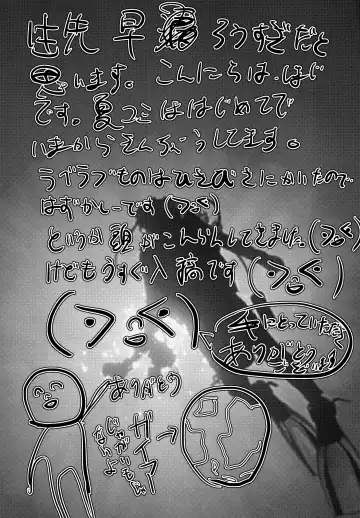 は先 早漏ろうすぎだと
思います。こんにちは、はじ
です。夏コミははじめてで
いまからきんちょうしてます。
ラブラブものはひさびさにかいたので
はずかしーです(つд<)
というか頭がこんらんしてきました(つд<)
けどもうすぐ入稿です(つд<)
(つд<)
手にとっていただき
ありがとうございます
ありがとう
ガイアー
じゃがいもじゃ
ないよ